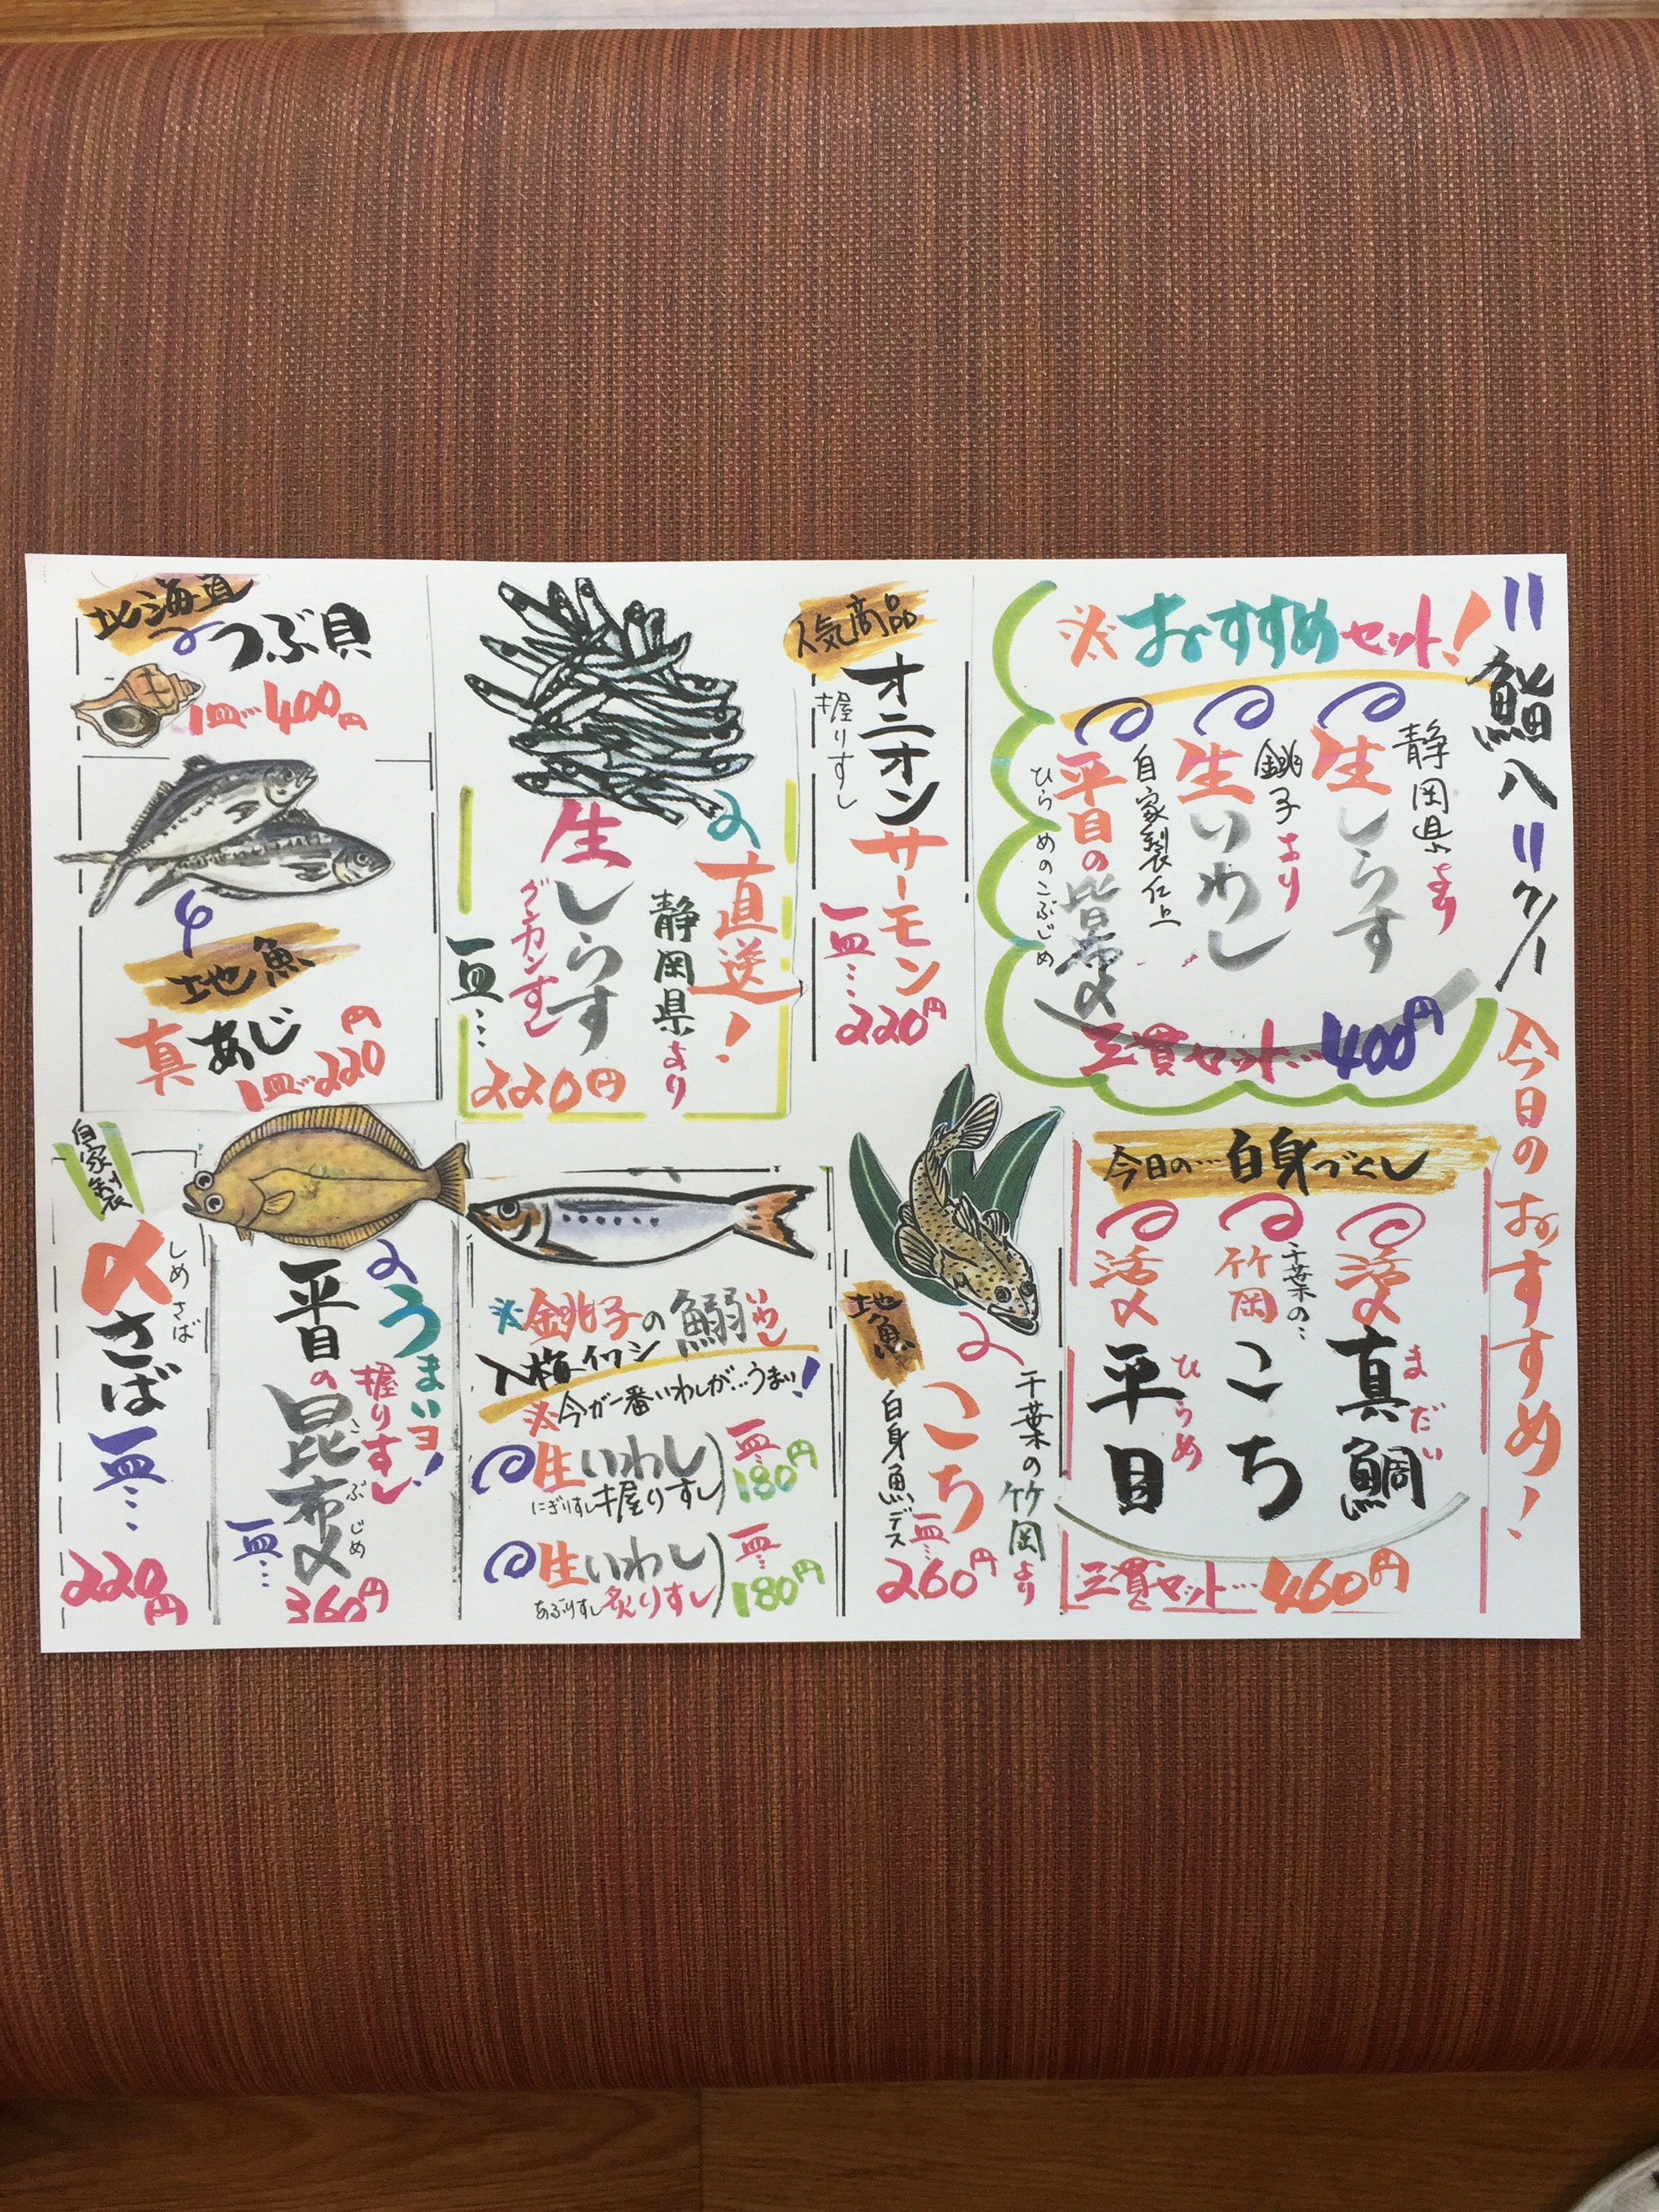 〃鮨八〃
今日のおすすめ!
※おすすめセット!
静岡県より
生しらす
銚子より
生いわし
自家製仕上
平目の昆布〆
ひらめのこぶじめ
三貫セット…400円
今日の…白身づくし
活〆
真鯛
まだい
千葉の…
竹岡
こち
活〆
平目
ひらめ
三貫セット…460円
人気商品
オニオンサーモン
握りすし
一皿…
220円
直送!
静岡県より
生しらす
グンカンすし
一皿…
220円
北海道
つぶ貝
1皿…400円
地魚
真あじ
1皿…220円
地魚
千葉の竹岡より
こち
白身魚デス
一皿…
260円
※銚子の鰯
いわし
入梅イワシ
※今が一番いわしが…うまい!
生いわし
にぎりすし握りすし
一皿…
180円
生いわし
あぶりすし炙りすし
一皿…
180円
うまいヨ!
握りすし
平目の昆布〆
こぶじめ
一皿…
360円
自家製
〆さば
しめさば
一皿…
220円